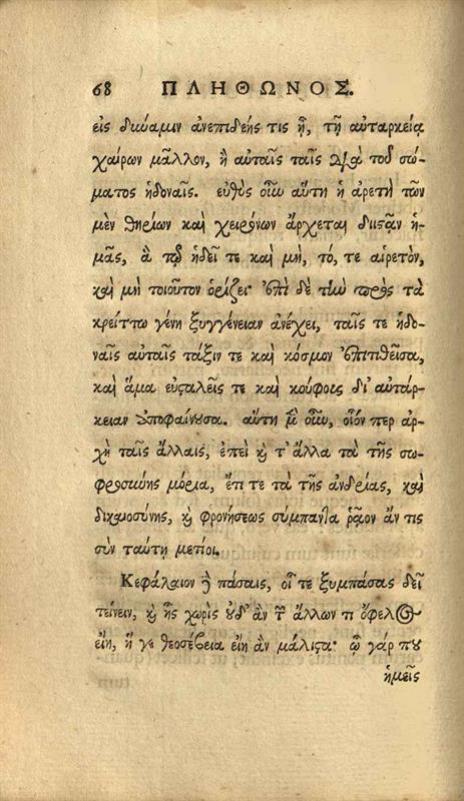 68 ΠΛΗΘΩΝΟΣ.
εἰς δύναμιν ἀνεπιδεής τις ᾖ, τῇ αὐταρκείᾳ
χαίρων μᾶλλον, ἢ αὐταῖς ταῖς διὰ τοῦ σώ-
ματος ἡδοναῖς. εὐθὺς οὖν αὕτη ἡ ἀρετὴ τῶν
μὲν θηρίων καὶ χειρόνων ἄρχεται διιστᾶν ἡ-
μᾶς, ἃ τῷ ἡδεῖ τε καὶ μὴ, τό, τε αἱρετὸν,
καὶ μὴ τοιοῦτον ὁρίζει· ἐπὶ δὲ τὴν πρὸς τὰ
κρείττω γένη ξυγγένειαν ἀνέχει, ταῖς τε ἡδο-
ναῖς αὐταῖς τάξιν τε καὶ κόσμον ἐπιτιθεῖσα,
καὶ ἅμα εὐσταλεῖς τε καὶ κούφους δι' αὐτάρ-
κειαν ἀποφαίνουσα. αὕτη μὲν οὖν, οἷόν περ ἀρ-
χὴ ταῖς ἄλλαις, ἐπεὶ καὶ τ' ἄλλα τὰ τῆς σω-
φροσύνης μόρια, ἔτι τε τὰ τῆς ἀνδρίας, καὶ
δικαιοσύνης, καὶ φρονήσεως σύμπαντα ῥᾷον ἄν τις
σὺν ταύτῃ μετίοι.
Κεφάλαιον δὲ πάσαις, οἷ τε ξυμπάσας δεῖ
τείνειν, καὶ ἧς χωρὶς οὐδ' ἂν τῶν ἄλλων τι ὄφελος
εἴη, ἥ γε θεοσέβεια εἴη ἂν μάλιστα· ᾧ γάρ που
ἡμεῖς